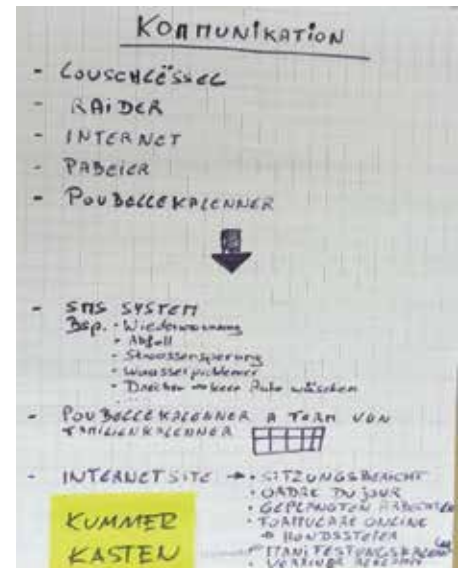 KOMMUNIKATION
- LOUSCHLËSSEL
- RAIDER
- INTERNET
- PABEIER
- POUBELLEKALENNER
- SMS SYSTEM
Bsp. - Wiederwarnung
- Abfall
- Stroossensperung
- Waasserproblemer
- Dréchen → keen Auto wäschen
- POUBELLEKALENNER A FORM VON
FAMILIENKALENNER
- INTERNETSITE → • SITZUNGSBERICHT
• ORDRE DU JOUR
• GEPLANGTEN
• FORMULARE ONLINE
→ HONDSSTEIER
• MANIFESTUNGSKALENNER
• VERAINER
KUMMER
KASTEN